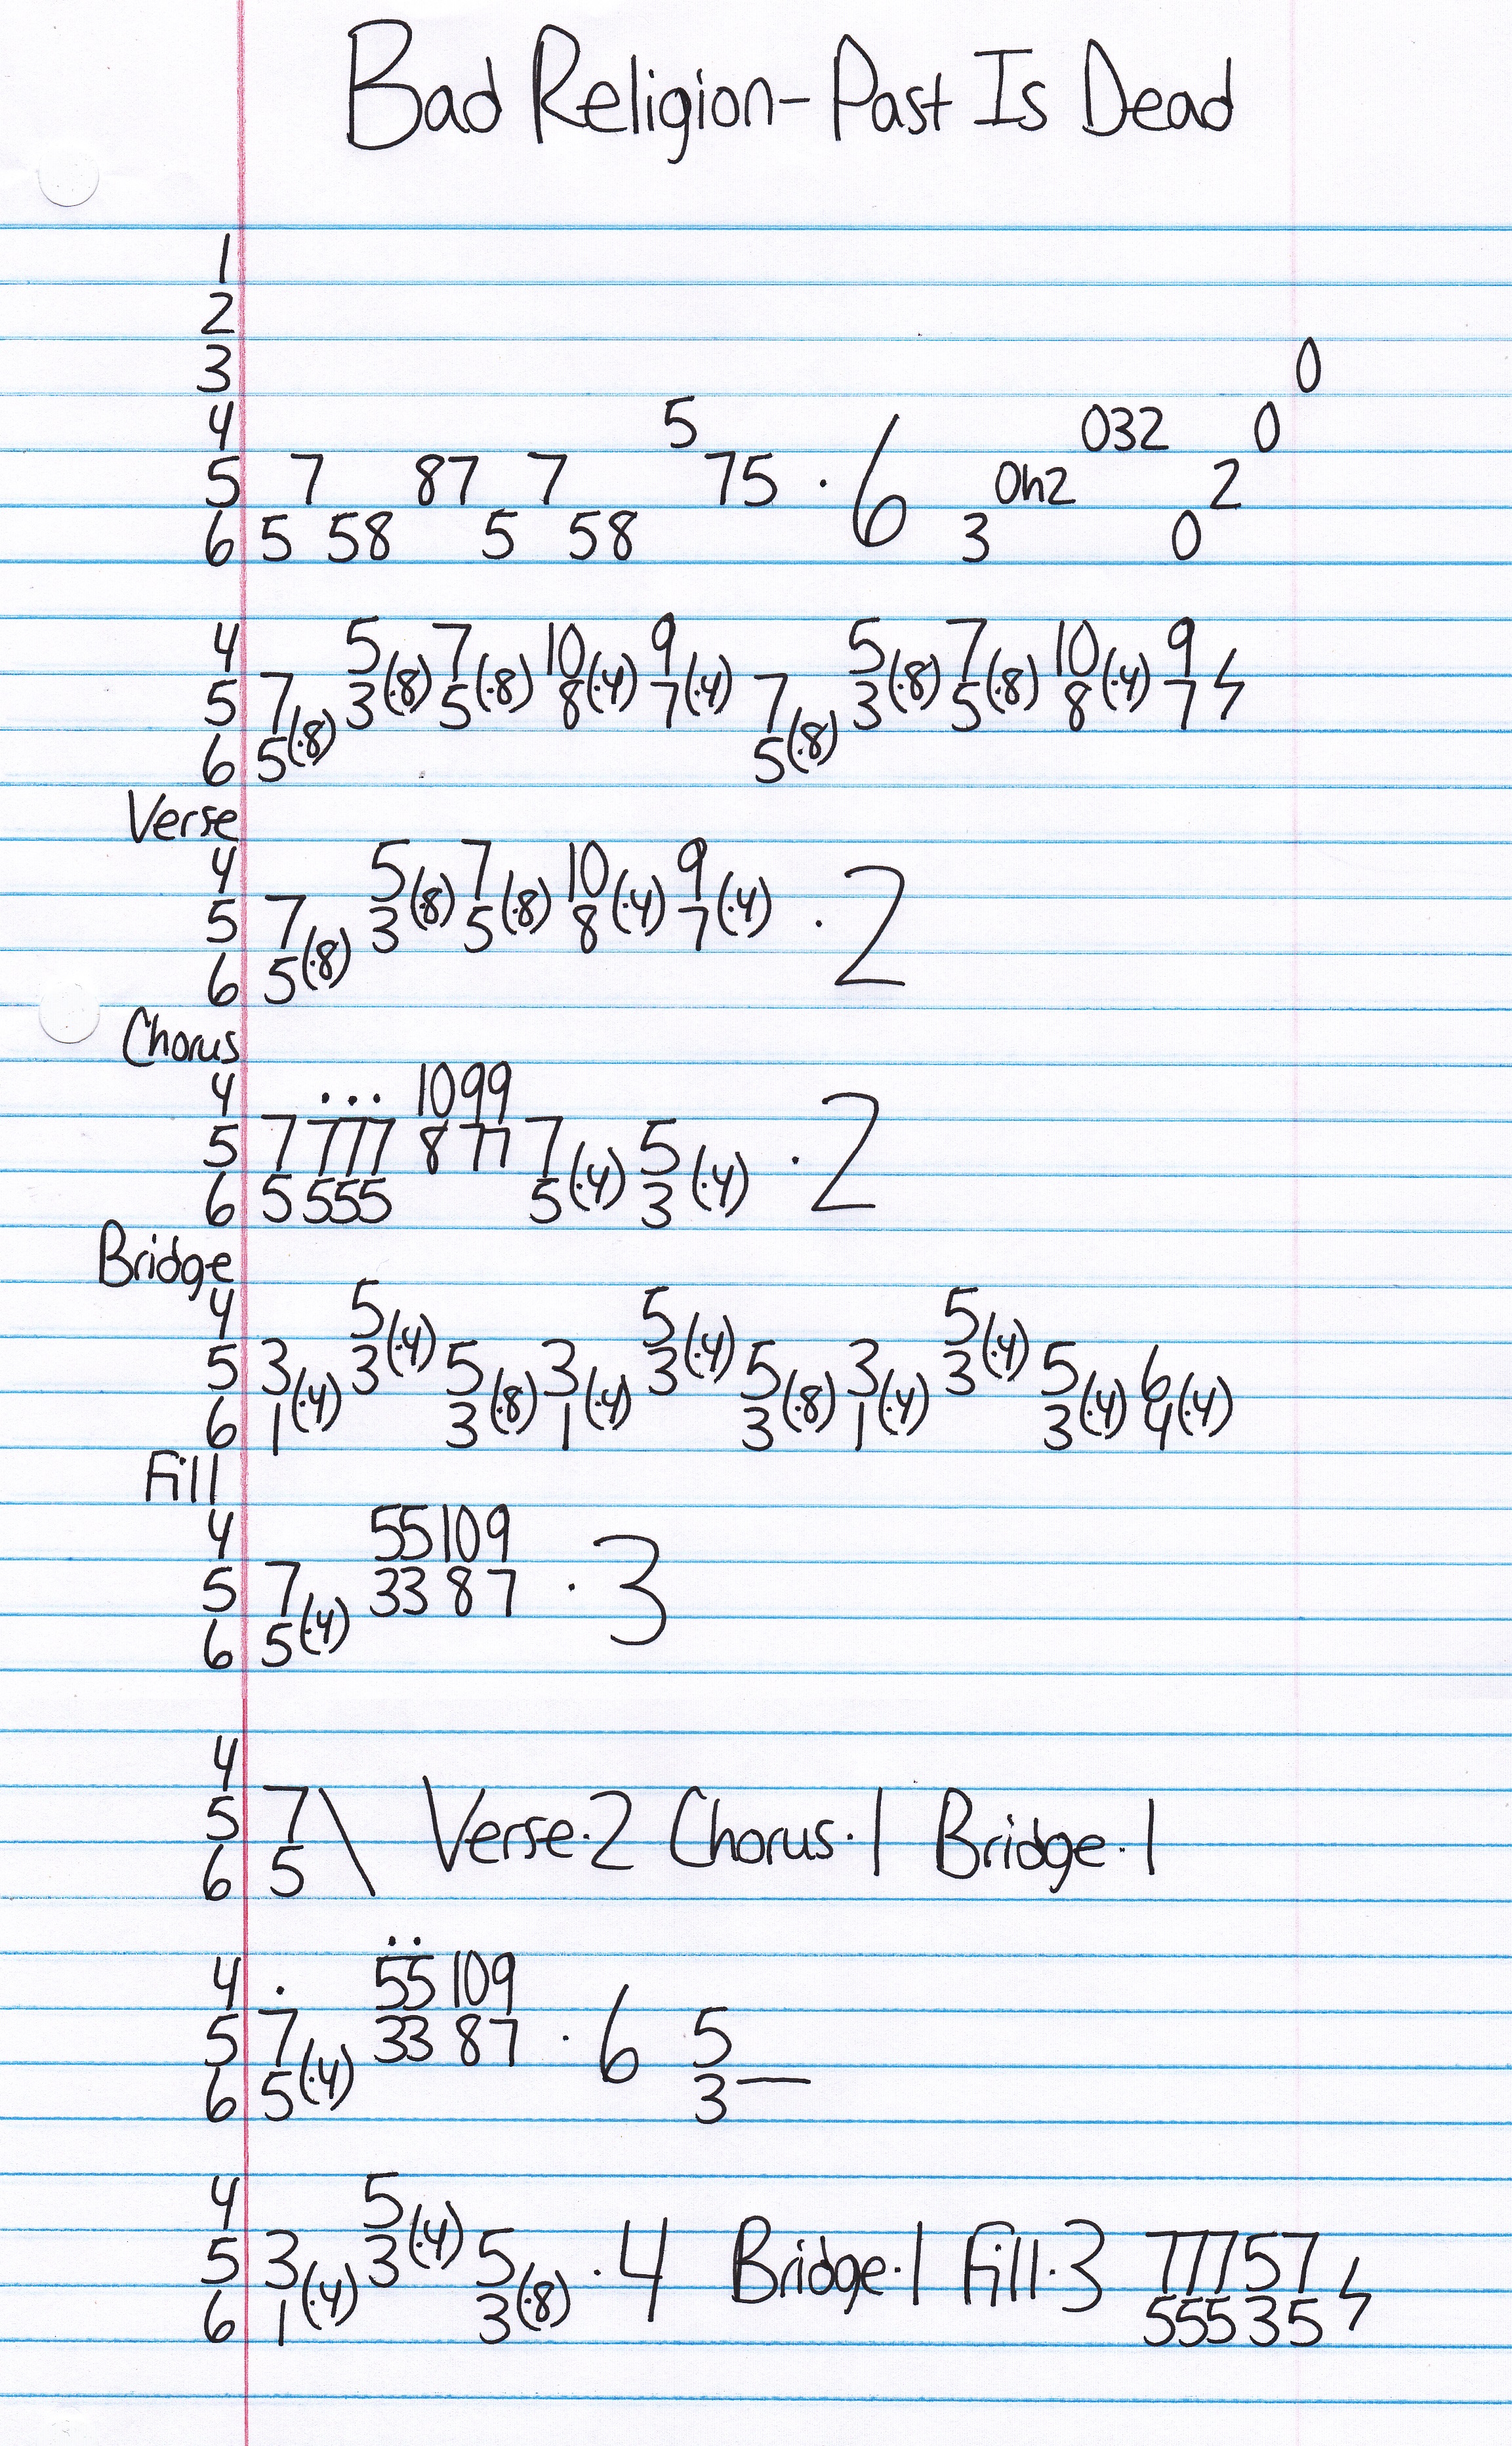 Bad Religion- Past Is Dead
1
2
3 0
4 5 032 0
5 7 87 7 75 · 6 0h2 2
6 5 58 5 58 3 0
4 5 7 10 9 5 7 10 9
5 7 3(·8) 5(·8) 8(·4) 7(·4) 7 3(·8) 5(·8) 8(·4) 7
6 5(·8) 5(·8)
Verse
4 5 7 10 9
5 7 3(·8) 5(·8) 8(·4) 7(·4) · 2
6 5(·8)
Chorus
4 ... 10 9 9
5 7 777 8 77 7 5 · 2
6 5 555 5(·4) 3(·4)
Bridge
4 5 5 5
5 3 3(·4) 5 3 3(·4) 5 3 3(·4) 5 6
6 1(·4) 3(·8) 1(·4) 3(·8) 1(·4) 3(·4) 4(·4)
Fill
4 55 10 9
5 7 33 8 7 · 3
6 5(·4)
4
5 7 \ Verse·2 Chorus·1 Bridge·1
6 5
4 · ·· 55 10 9
5 7 33 8 7 · 6 5
6 5(·4) 3—
4 5
5 3 3(·4) 5 · 4 Bridge·1 Fill·3 77757
6 1(·4) 3(·8) 55535